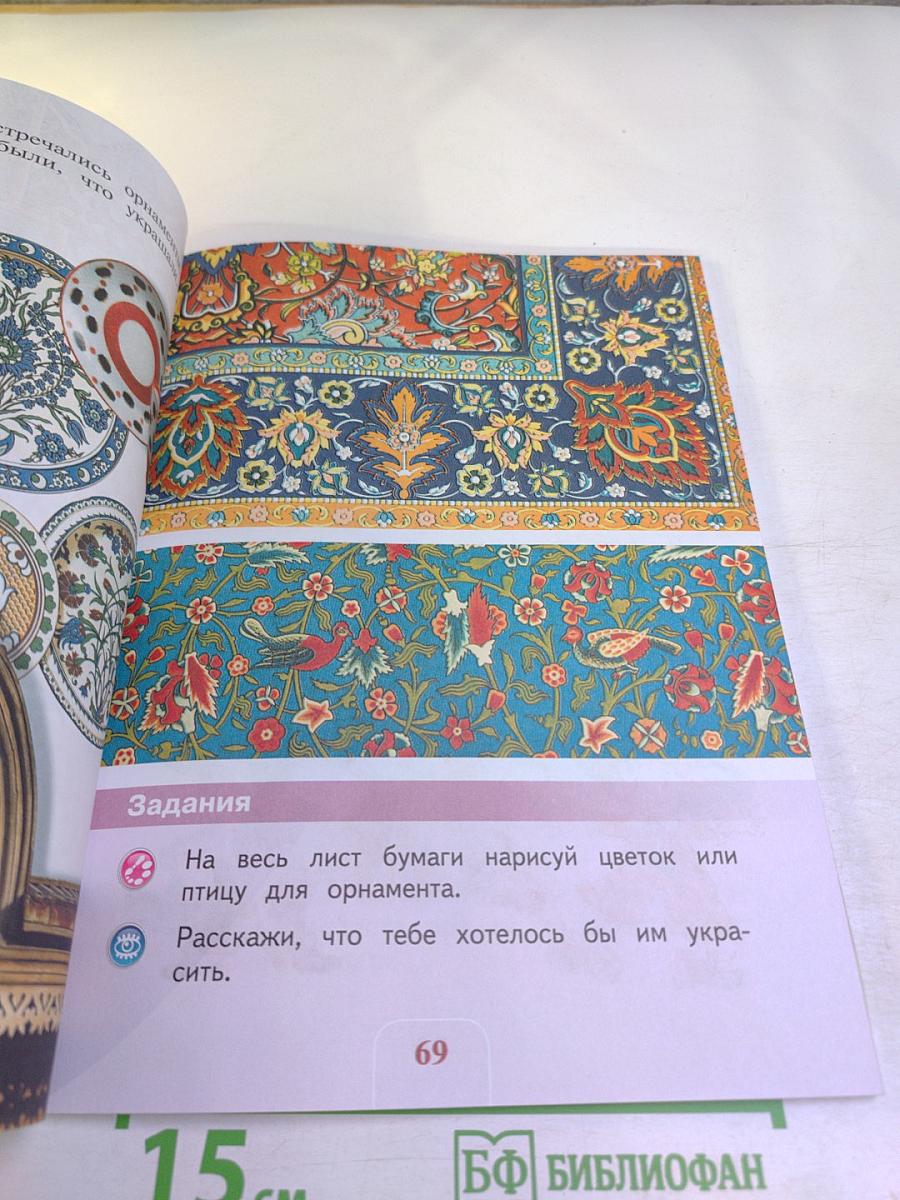 стречались орнамен
были, что украша
Задания
На весь лист бумаги нарисуй цветок или
птицу для орнамента.
Расскажи, что тебе хотелось бы им укра-
сить.
69
15 см
БФ БИБЛИОФАН